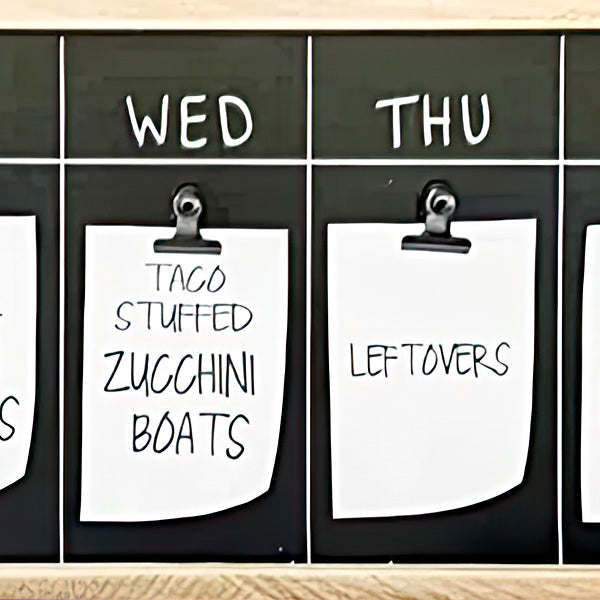 WED
TACO
STUFFED
ZUCCHINI
BOATS
THU
LEFTOVERS